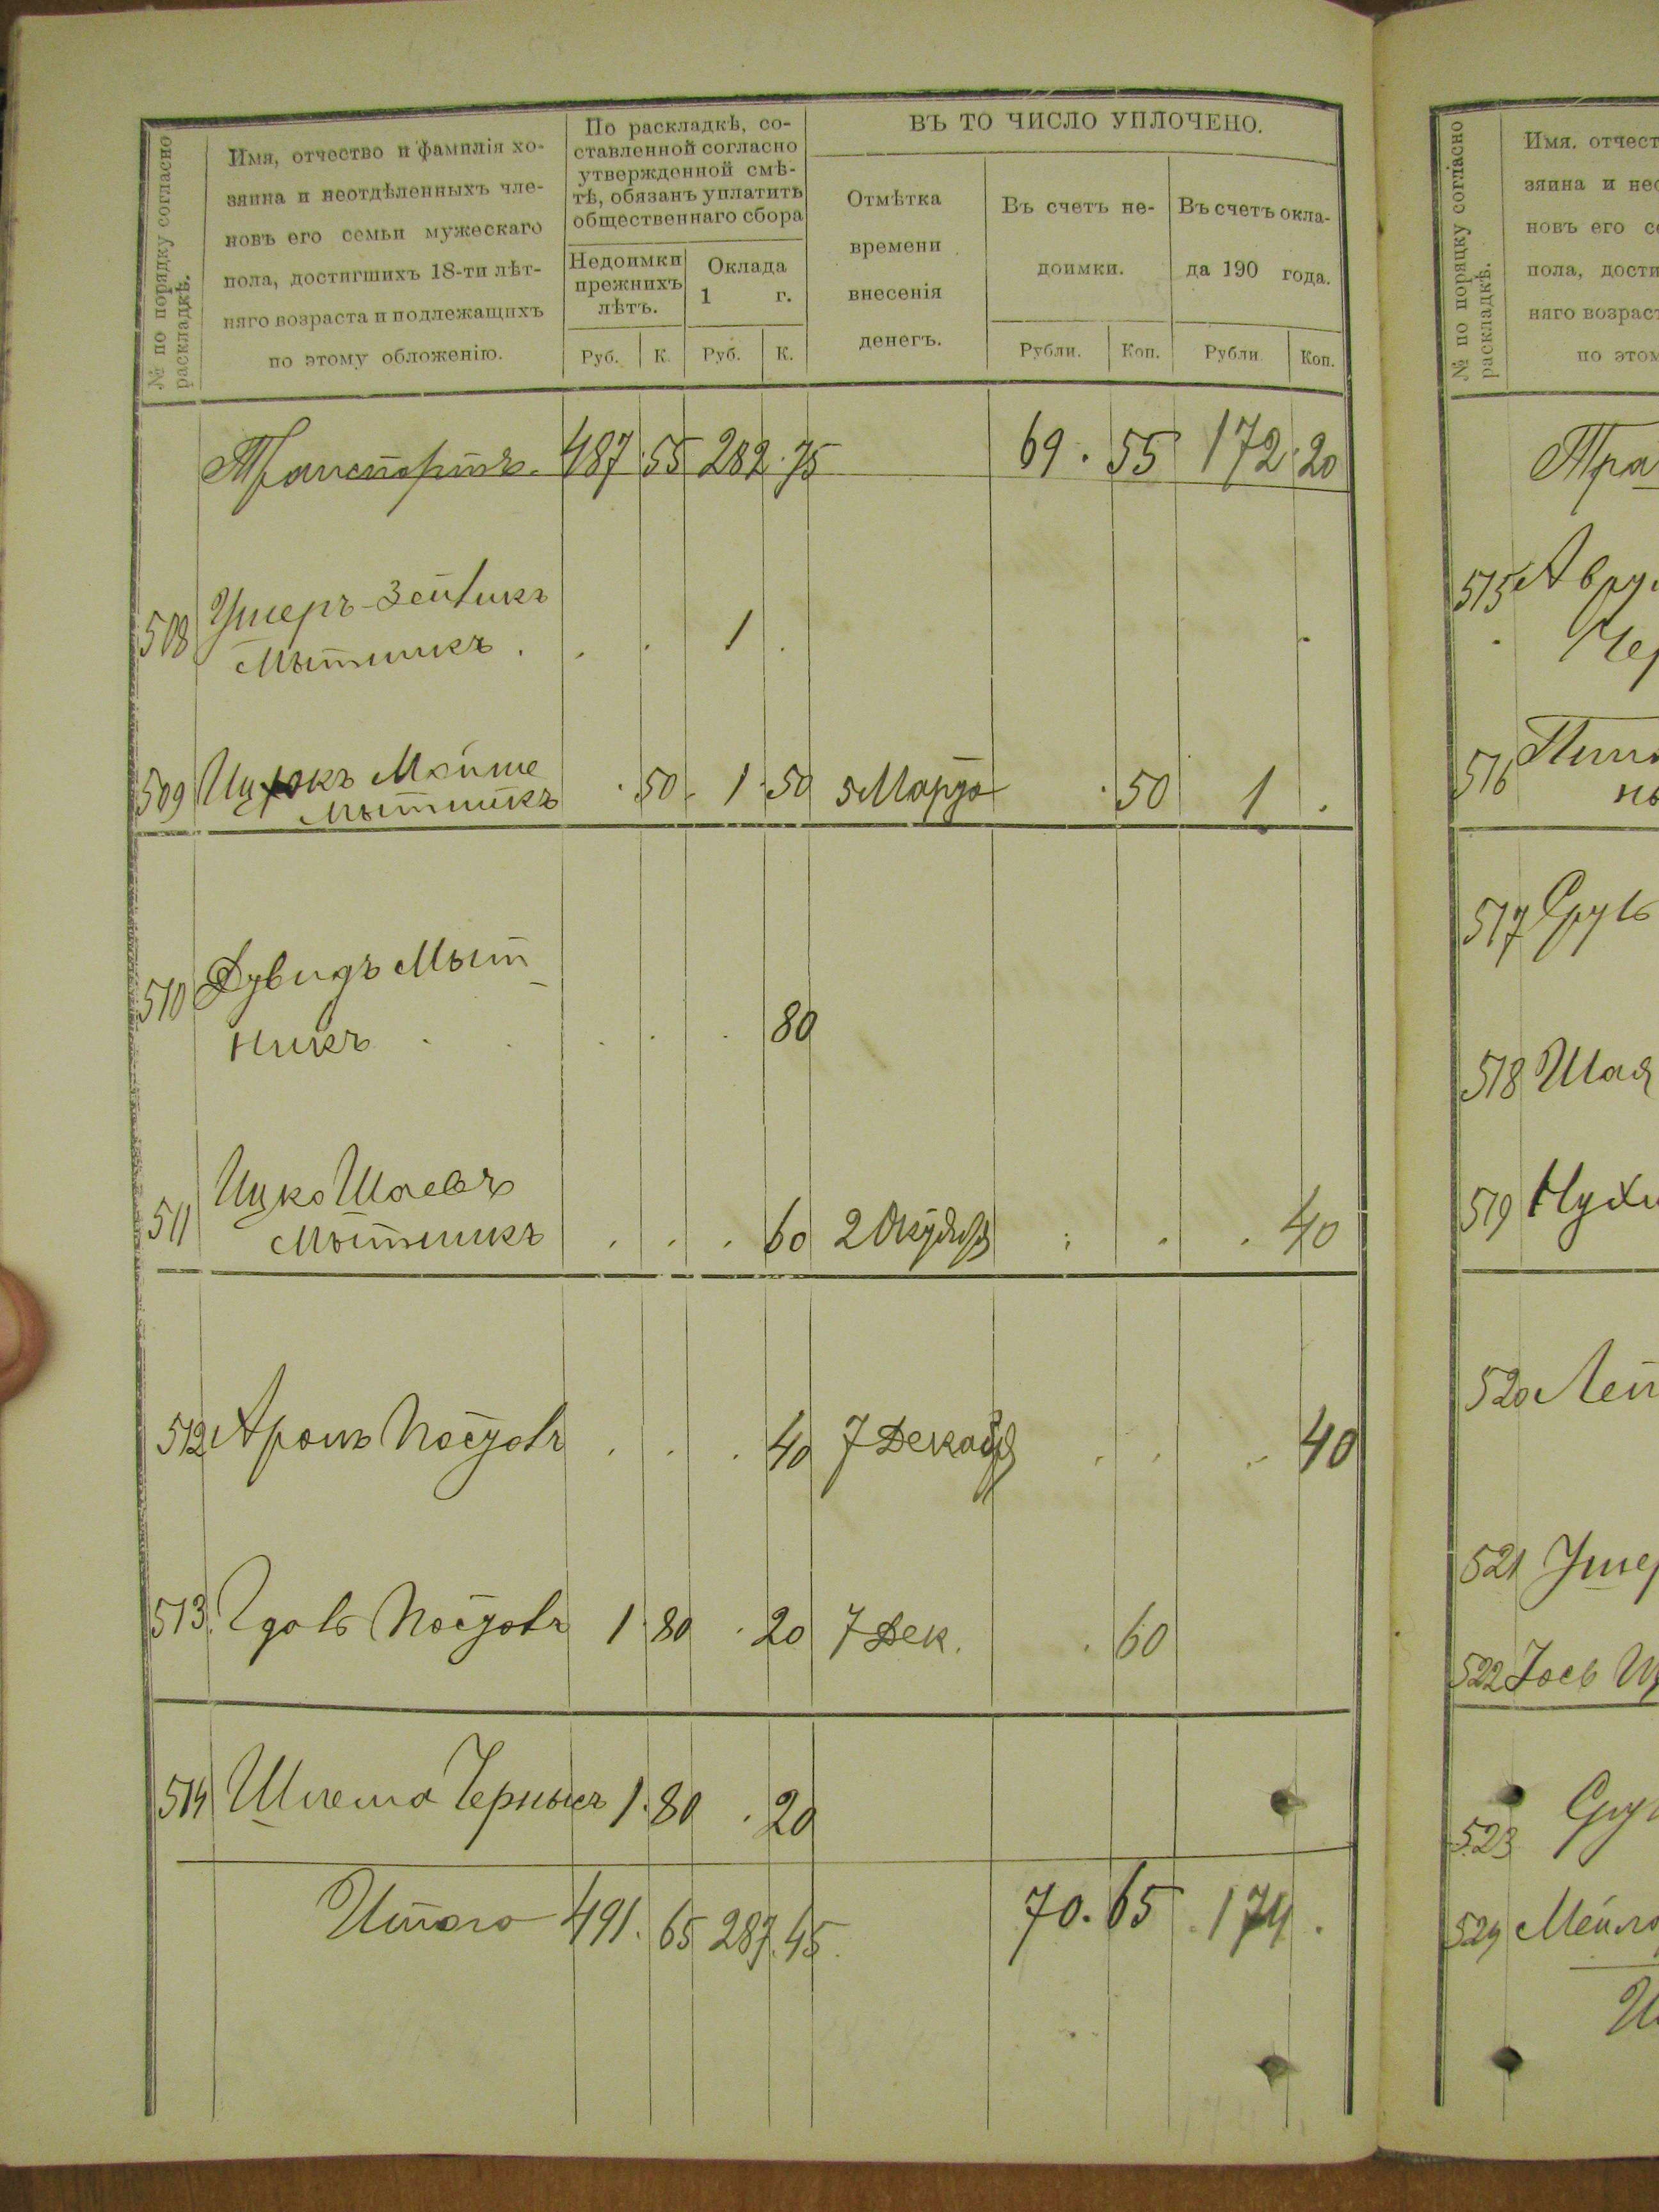 № по порядку согласно
раскладкѣ.
Имя, отчество и фамилія хо-
зяина и неотдѣленныхъ чле-
новъ его семьи мужескаго
пола, достигшихъ 18-ти лѣт-
няго возраста и подлежащихъ
по этому обложенію.
По раскладкѣ, со-
ставленной согласно
утвержденной смѣ-
тѣ, обязанъ уплатить
общественнаго сбора
Недоимки
прежнихъ
лѣтъ.
Оклада
1 г.
Руб. К. Руб. К.
ВЪ ТО ЧИСЛО УПЛОЧЕНО.
Отмѣтка
времени
внесенія
денегъ.
Въ счетъ не-
доимки.
Въ счетъ окла-
да 190 года.
Рубли. Коп. Рубли Коп.
Транспортъ. 487. 55 282. 75 69. 55 172. 20
508 Ушеръ-Зейликъ
Мытникъ . . . 1 .
509 Ицкокъ Мойше
Мытникъ . 50. 1. 50 5 Марта . 50 1 .
510 Дувидъ Мыт-
никъ . . . . . 80
511 Ицко Шаевъ
Мытникъ . . . 60 2 Октября . . . 40
512 Аронъ Постовъ . . . 40 7 Декабря . . . 40
513. Постовъ 1. 80 . 20 7 Дек. . 60
514 Шлема Черныхъ 1. 80 . 20
Итого 491. 65 287. 45. 70. 65 . 174 .
№ по порядку согласно
раскладкѣ.
Имя. отчест
зяина и нео
новъ его се
пола, дости
няго возраст
по этом
Тра
515
.
Чер
516
517 Сруль
518 Шая
519 Нухи
520 Лей
521 Ушер
522 Іось
523 Сру
524